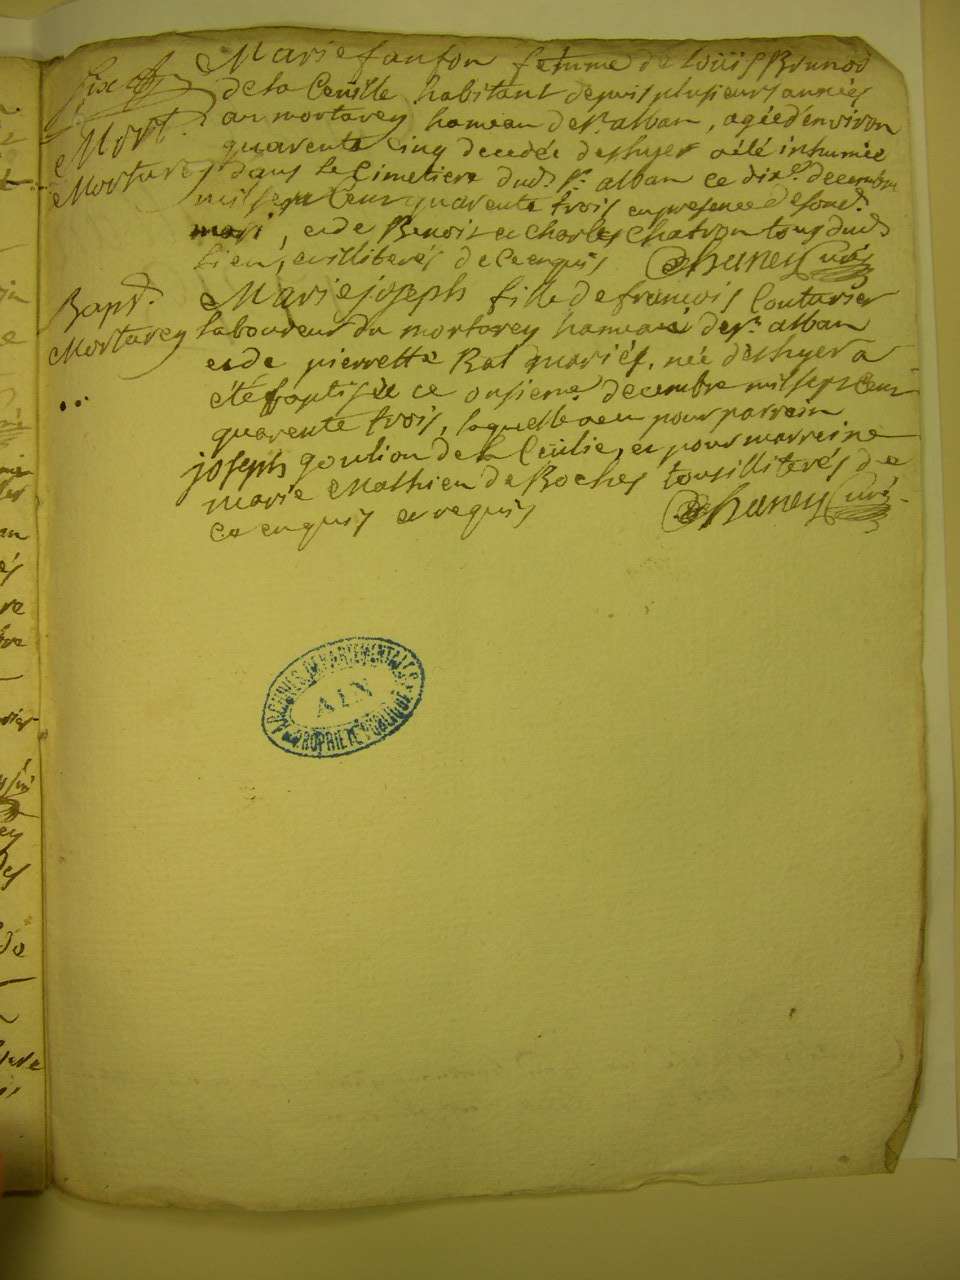 Six
Mort.
Mortarey
Marie fanton femme de Loüis Brunod
de la Ceuille habitant depuis plusieurs années
au mortarey hameau de st. alban, agée d'environ
quarente cinq decedée deshyer a été inhumée
dans le Cimetiere dud. st. alban ce dixe. decembre
mil sept Cent quarente trois en presence de sond.
mari, et de Benoit et Charles Chatron tous dud.
lieu, illiterés de ce enquis Chaney Curé
Bapt.
Mortarey
Marie joseph fille de francois Couturier
laboureur du mortarey hameau de st. alban
et de pierrette Bal mariés, née deshyer a
été baptisée ce onsieme decembre mil sept cent
quarente trois, laquelle a eu pour parrain
joseph goulion de la Ceülie, et pour marreine
marie Mathieu de Roches tous illiterés de
ce enquis et requis Chaney Curé
ARCHIVES DEPARTEMENTALES
AIN
PROPRIETE PUBLIQUE